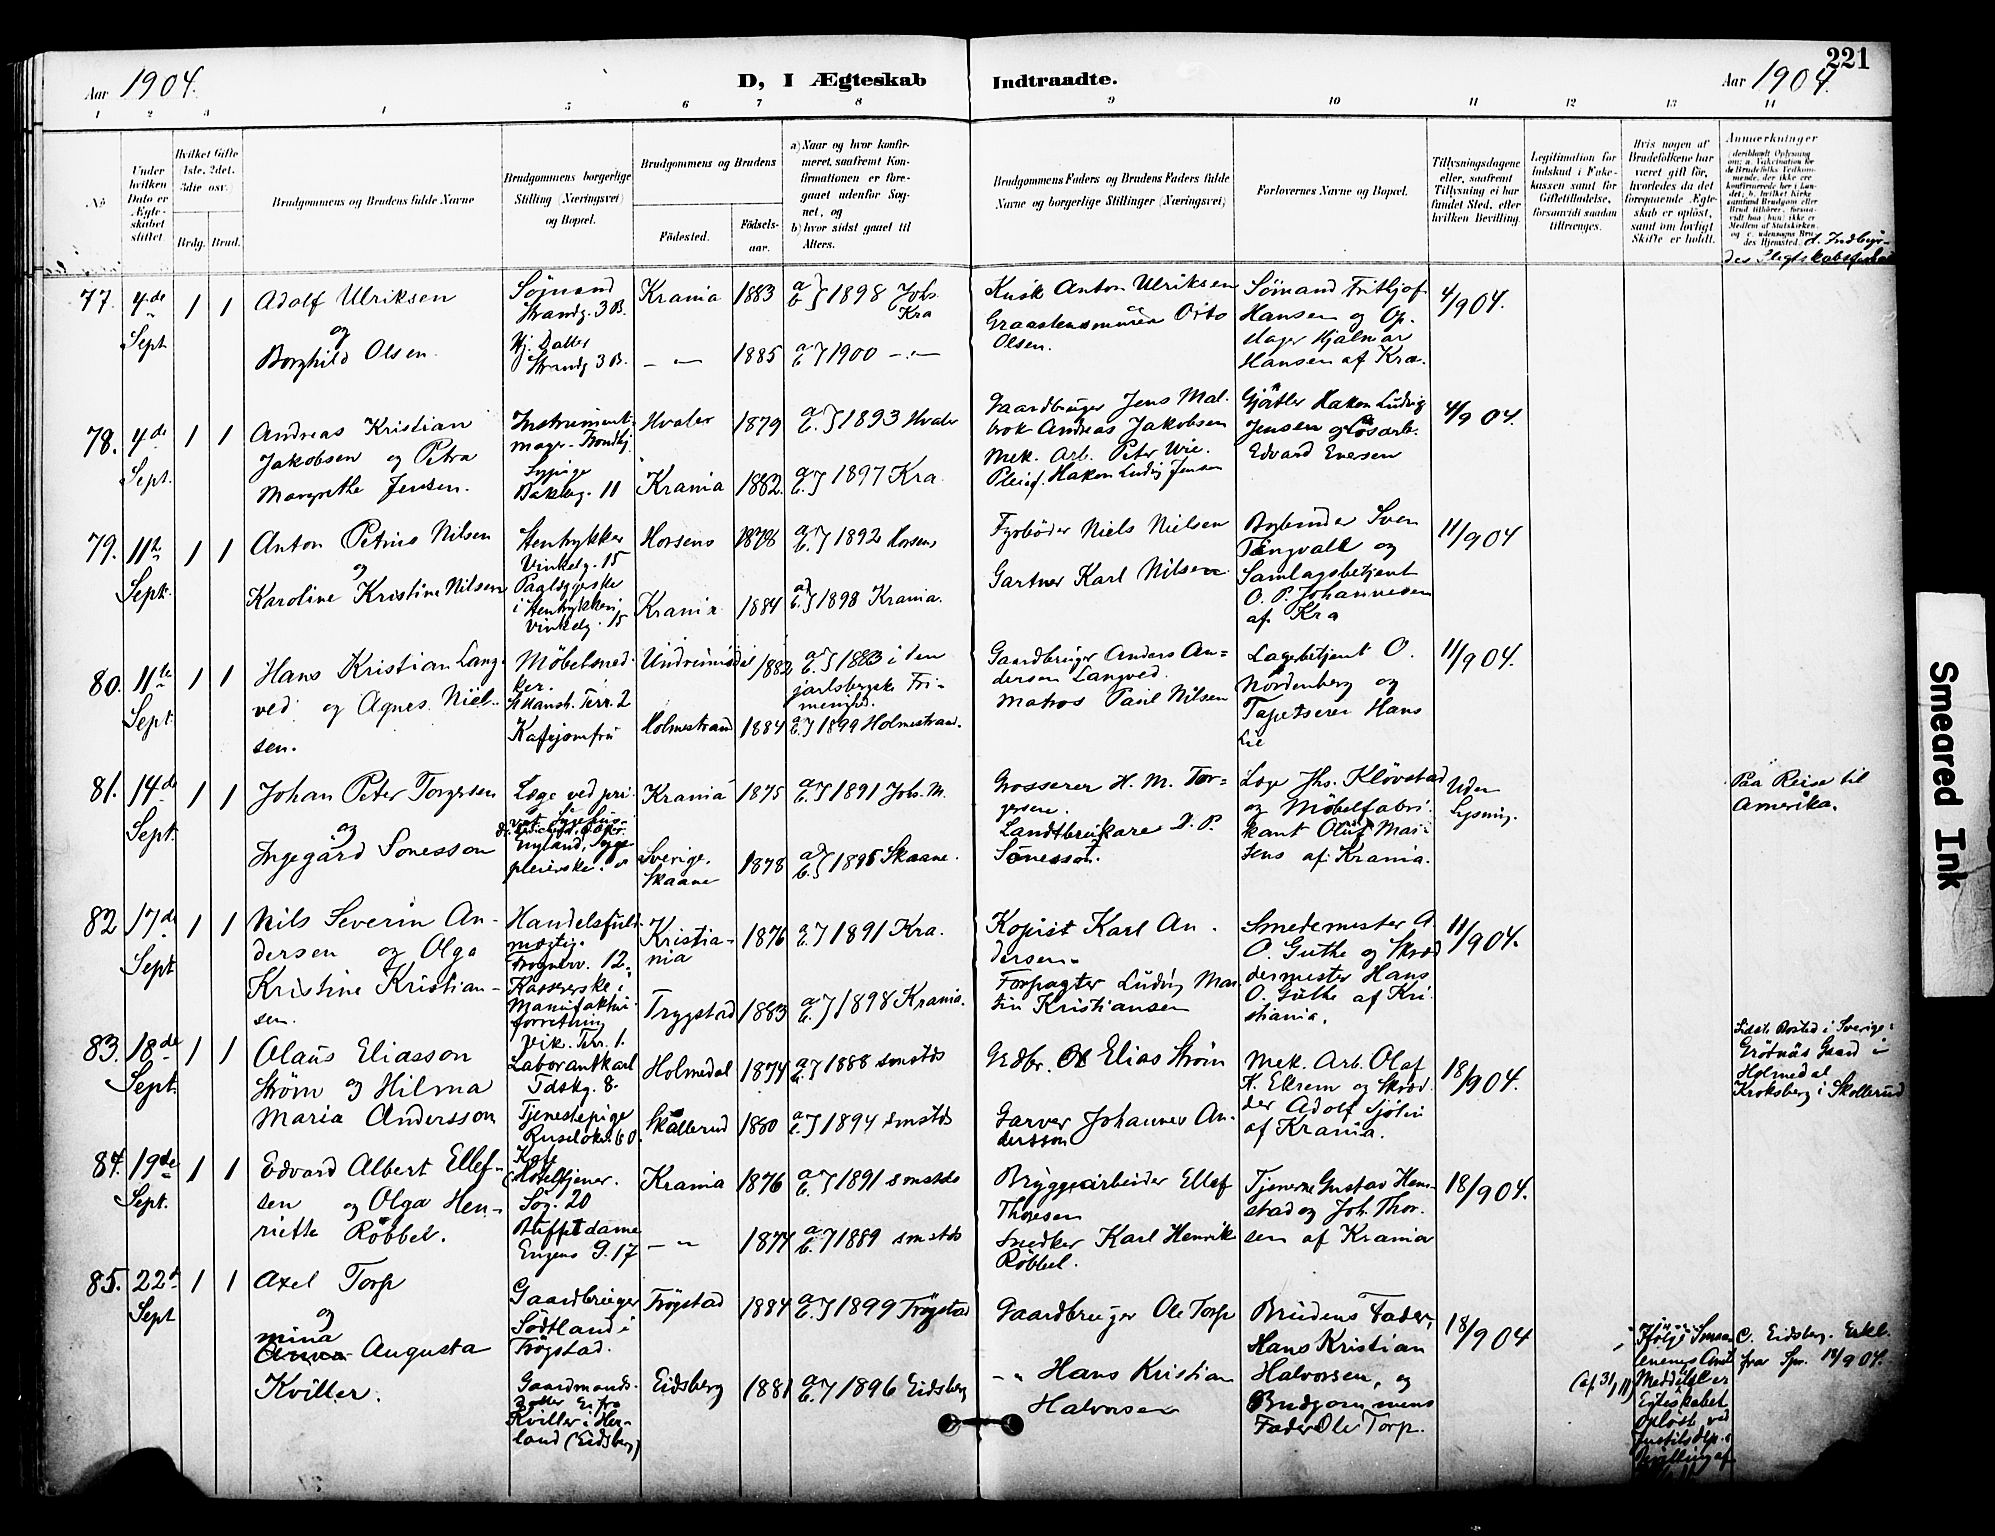 221
Aar 1904.
D, I Ægteskab Indtraadte.
Aar 1904.
1 2 3 4 5 6 7 8 9 10 11 12 13 14
No.
Under hvilken Dato er Ægteskabet stiftet.
Hvilket Gifte 1ste, 2det, 3die osv.
Brdg. Brud.
Brudgommens og Brudens fulde Navne
Brudgommens borgerlige Stilling (Næringsvei) og Bopæl.
Brudgommens og Brudens
Fødested.
Fødselsaar.
a) Naar og hvor konfirmeret, saafremt Konfirmationen er foregaaet udenfor Sognet, og
b) hvor sidst gaaet til Alters.
Brudgommens Faders og Brudens Faders fulde Navne og borgerlige Stillinger (Næringsvei)
Forlovernes Navne og Bopæl.
Tillysningsdagene eller, saafremt Tillysning ei har fundet Sted, efter hvilken Bevilling.
Legitimation for Indskud i Enkekassen samt for Giftetilladelse, forsaavidt saadan tiltrænges.
Hvis nogen af Brudefolkene har været gift før, hvorledes da det foregaaende Ægteskab er opløst, samt om lovligt Skifte er holdt.
Anmærkninger
77. 4de Sept 1 1
Adolf Ulriksen
og
Borghild Olsen.
Sømand
Strandg. 3 B.
Hj. Datter
Strandg 3 B.
Krania 1883 a b } 1898 Johs. Kra
— " — 1885 a b } 1900 — " —
Kusk Anton Ulriksen
Olsen.
Sømand Frithjof
Hansen og Op-
Hjalmar
Hansen af Kra.
4/9 04.
78. 4de Sept. 1 1
Andreas Kristian
Jakobsen og Petra
Margrethe Jensen.
Instrument-
mager
Sypige
11
Hvaler 1879 a b } 1893 Hvaler
Krania 1882. a b } 1897 Kra.
Gaardbruger Jens Mal-
Andreas Jakobsen
Mek. Arb. Peter
Pleief. Hakon Ludvig Jensen
Gjørtler Hakon Ludvig
Jensen og Løsarb.
Edvard Evensen
4/9 04.
79. 11te Sept. 1 1
Anton Petrus Nilsen
og
Karoline Kristine Nilsen
Stentrykker
Vinkelg. 15
Paalæggerske
i Stentrykkeri
Vinkelg. 15
Horsens 1878 a b } 1892 Horsens
Krania 1884 a b } 1898 Krania.
Fyrbøder Niels Nielsen
Gartner Karl Nilsen
Sven
Tengvall og
Samlagsbetjent
O. P. Johannesen
af Kra
11/9 04
80. 11te Sept. 1 1
Hans Kristian Lang-
ved og Agnes Niel-
sen.
Møbelsned-
ker.
St Hansh. Terr. 2
Kafejomfru
Undrumsdal 1882 a b } 1883 i den
jarlsbergske Fri-
menighed.
Holmestrand 1884 a b } 1899 Holmestrand.
Gaardbruger Anders An-
dersen Langved.
Matros Paul Nilsen
Lagebetjent O.
Nordenberg og
Tapetserer Hans
Lie
11/9 04.
81. 14de Sept. 1 1
Johan Peter Torgersen
og
Ingegärd Sonesson
Læge ved pri-
vat Sygehus
England, Syge-
pleierske.
Krania 1875 a b } 1891 Joh. M.
Sverige, Skaane 1878 a b } 1895 Skaane.
Grosserer H. M. Tor-
gersen.
Landtbrukare D. P.
Sonesson.
Læge Jhs. Kløvstad
og Møbelfabri-
kant Oluf Mar-
tens af Krania.
Uden
Lysning.
Paa Reise til
Amerika.
82 17de Sept 1 1
Nils Severin An-
dersen og Olga
Kristine Kristian-
sen.
Handelsfuld-
mægtig.
Frognerv. 12.
Kassererske i
Manufaktur
forretning
Vik. Terr. 1.
Kristia-
nia 1876 a b } 1891 Kra.
Trygstad 1883 a b } 1898 Krania.
Kopist Karl An-
dersen.
Forpagter Ludvig Mar-
tin Kristiansen
Smedemester A.
O. Guthe og Skræd
dermester Hans
O. Guthe af Kri-
stiania.
11/9 04.
83. 18de Sept. 1 1
Olaus Eliasson
Strøm og Hilma
Maria Andersson
Laborantkarl
Tdskg. 8.
Tjenestepige
Ruseløkv. 60.
Holmedal 1874 a b } 1888 smstds
Skållerud 1880 a b } 1894 smstds
Grdbr. Elias Strøm
Garver Johannes An-
dersson
Mek. Arb. Olaf
K. Ekrem og Skræd-
der Adolf Sjölin
af Krania.
18/9 04.
Sidste Bosted i Sverige:
Grötnäs Gaard i
Holmedal
Kroksberg i Skollerud
84. 19de Sept. 1 1
Edvard Albert Ellef-
sen og Olga Hen-
riette Röbbel.
Kafe
(Hoteltjener.
Søg. 20
Buffetdame
Eugens G. 17
Krania 1876 a b } 1891 smstds
— " — 1874 a b } 1889 smstds
Bryggearbeider Ellef
Thoresen
Snedker Karl Henrik
Röbbel.
Tjenerne Gustav Hem-
stad og Joh. Thor-
sen af Krania
18/9 04.
85. 22de Sept 1 1
Axel Torp
og
Mina
Anna Augusta
Kviller.
Gaardbruger
Södtland i
Trøgstad.
Gaardmands-
datter Ei fra
Kviller i Hær-
land (Eidsberg)
Trøgstad 1884 a b } 1899 Trøgstad
Eidsberg 1881 a b } 1896 Eidsberg
Gaardbruger Ole Torp
— " Hans Kristian
Halvorsen
Brudens Fader,
Hans Kristian
Halvorsen, og
Brudgommens
Fader Ole Torp.
18/9 04
Meddelelse er
Egteskabet
opløst ved
Justitsdep.s
Bevilling af
c. Eidsberg. Erkl.
fra Spr.
Smeared Ink